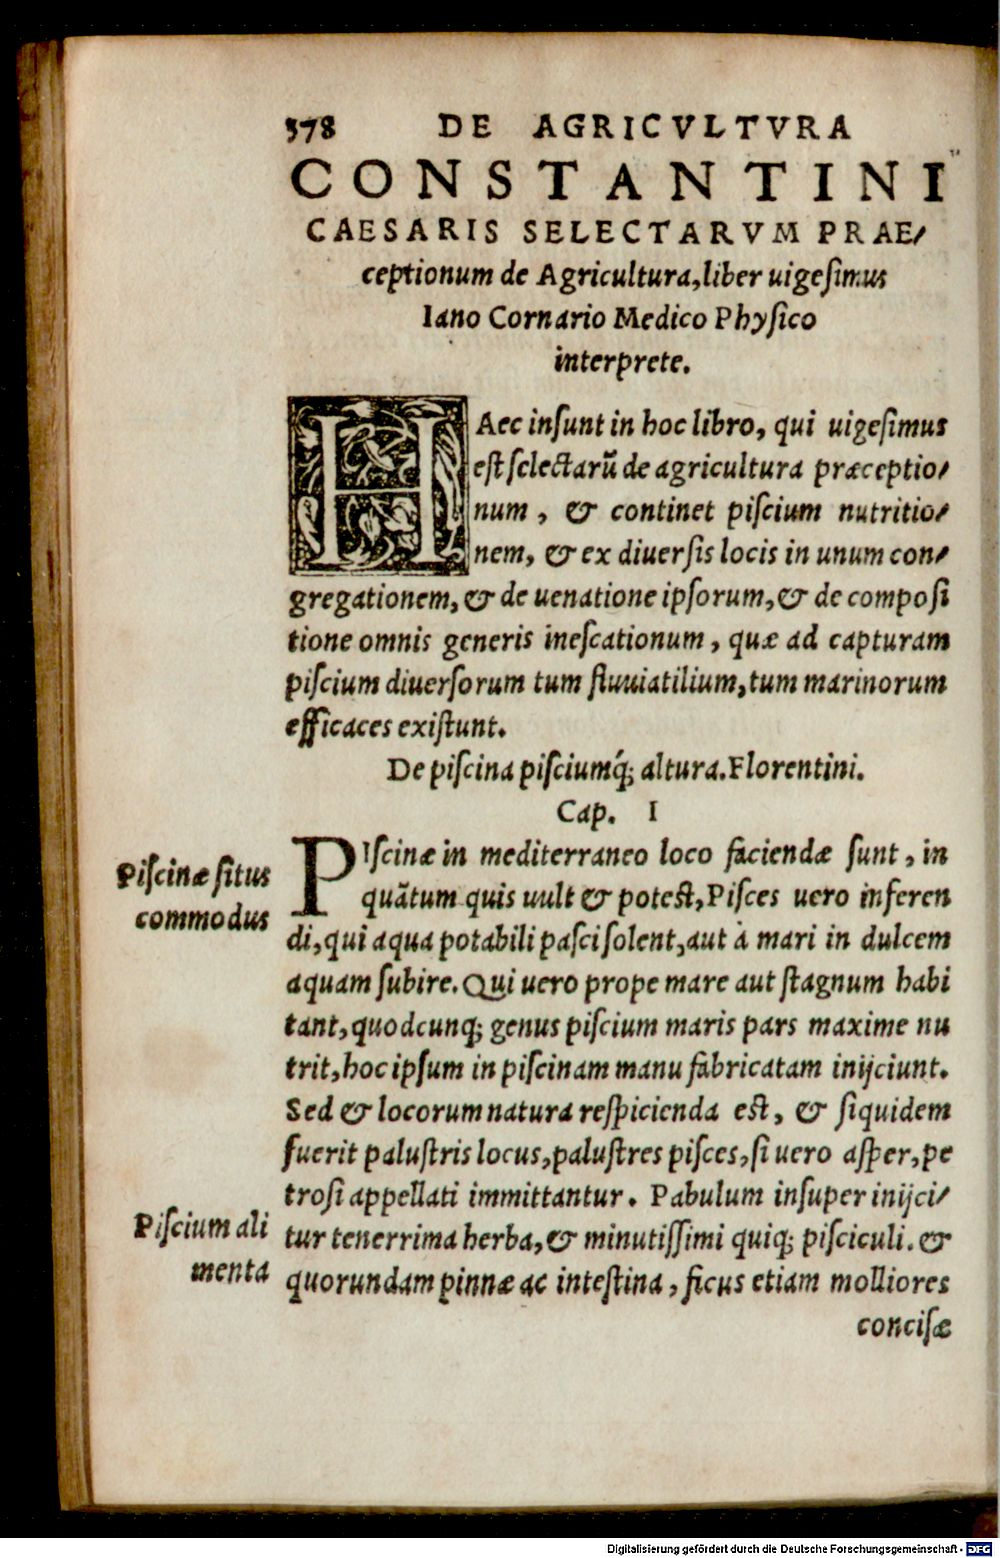 378 DE AGRICVLTVRA
CONSTANTINI
CAESARIS SELECTARVM PRAE/
ceptionum de Agricultura, liber uigeſimus
Iano Cornario Medico Phyſico
interprete.
HAec inſunt in hoc libro, qui uigeſimus
eſt ſelectarũ de agricultura præceptio/
num, & continet piſcium nutritio/
nem, & ex diuerſis locis in unum con/
gregationem, & de uenatione ipſorum, & de compoſi
tione omnis generis ineſcationum, quæ ad capturam
piſcium diuerſorum tum fluuiatilium, tum marinorum
efficaces exiſtunt.
De piſcina piſciumq́; altura. Florentini.
Cap. I
PIſcinæ in mediterraneo loco faciendæ ſunt, in
Piſcinæ ſitus
commodus
quãtum quis uult & poteſt, Piſces uero inferen
di, qui aqua potabili paſci ſolent, aut à mari in dulcem
aquam ſubire. Qui uero prope mare aut ſtagnum habi
tant, quodcunq; genus piſcium maris pars maxime nu
trit, hoc ipſum in piſcinam manu fabricatam inijciunt.
Sed & locorum natura reſpicienda eſt, & ſiquidem
fuerit paluſtris locus, paluſtres piſces, ſi uero aſper, pe
troſi appellati immittantur. Pabulum inſuper inijci/
Piſcium ali
menta
tur tenerrima herba, & minutiſſimi quiq; piſciculi. &
quorundam pinnæ ac inteſtina, ficus etiam molliores
conciſæ
Digitalisierung gefördert durch die Deutsche Forschungsgemeinschaft - DFG